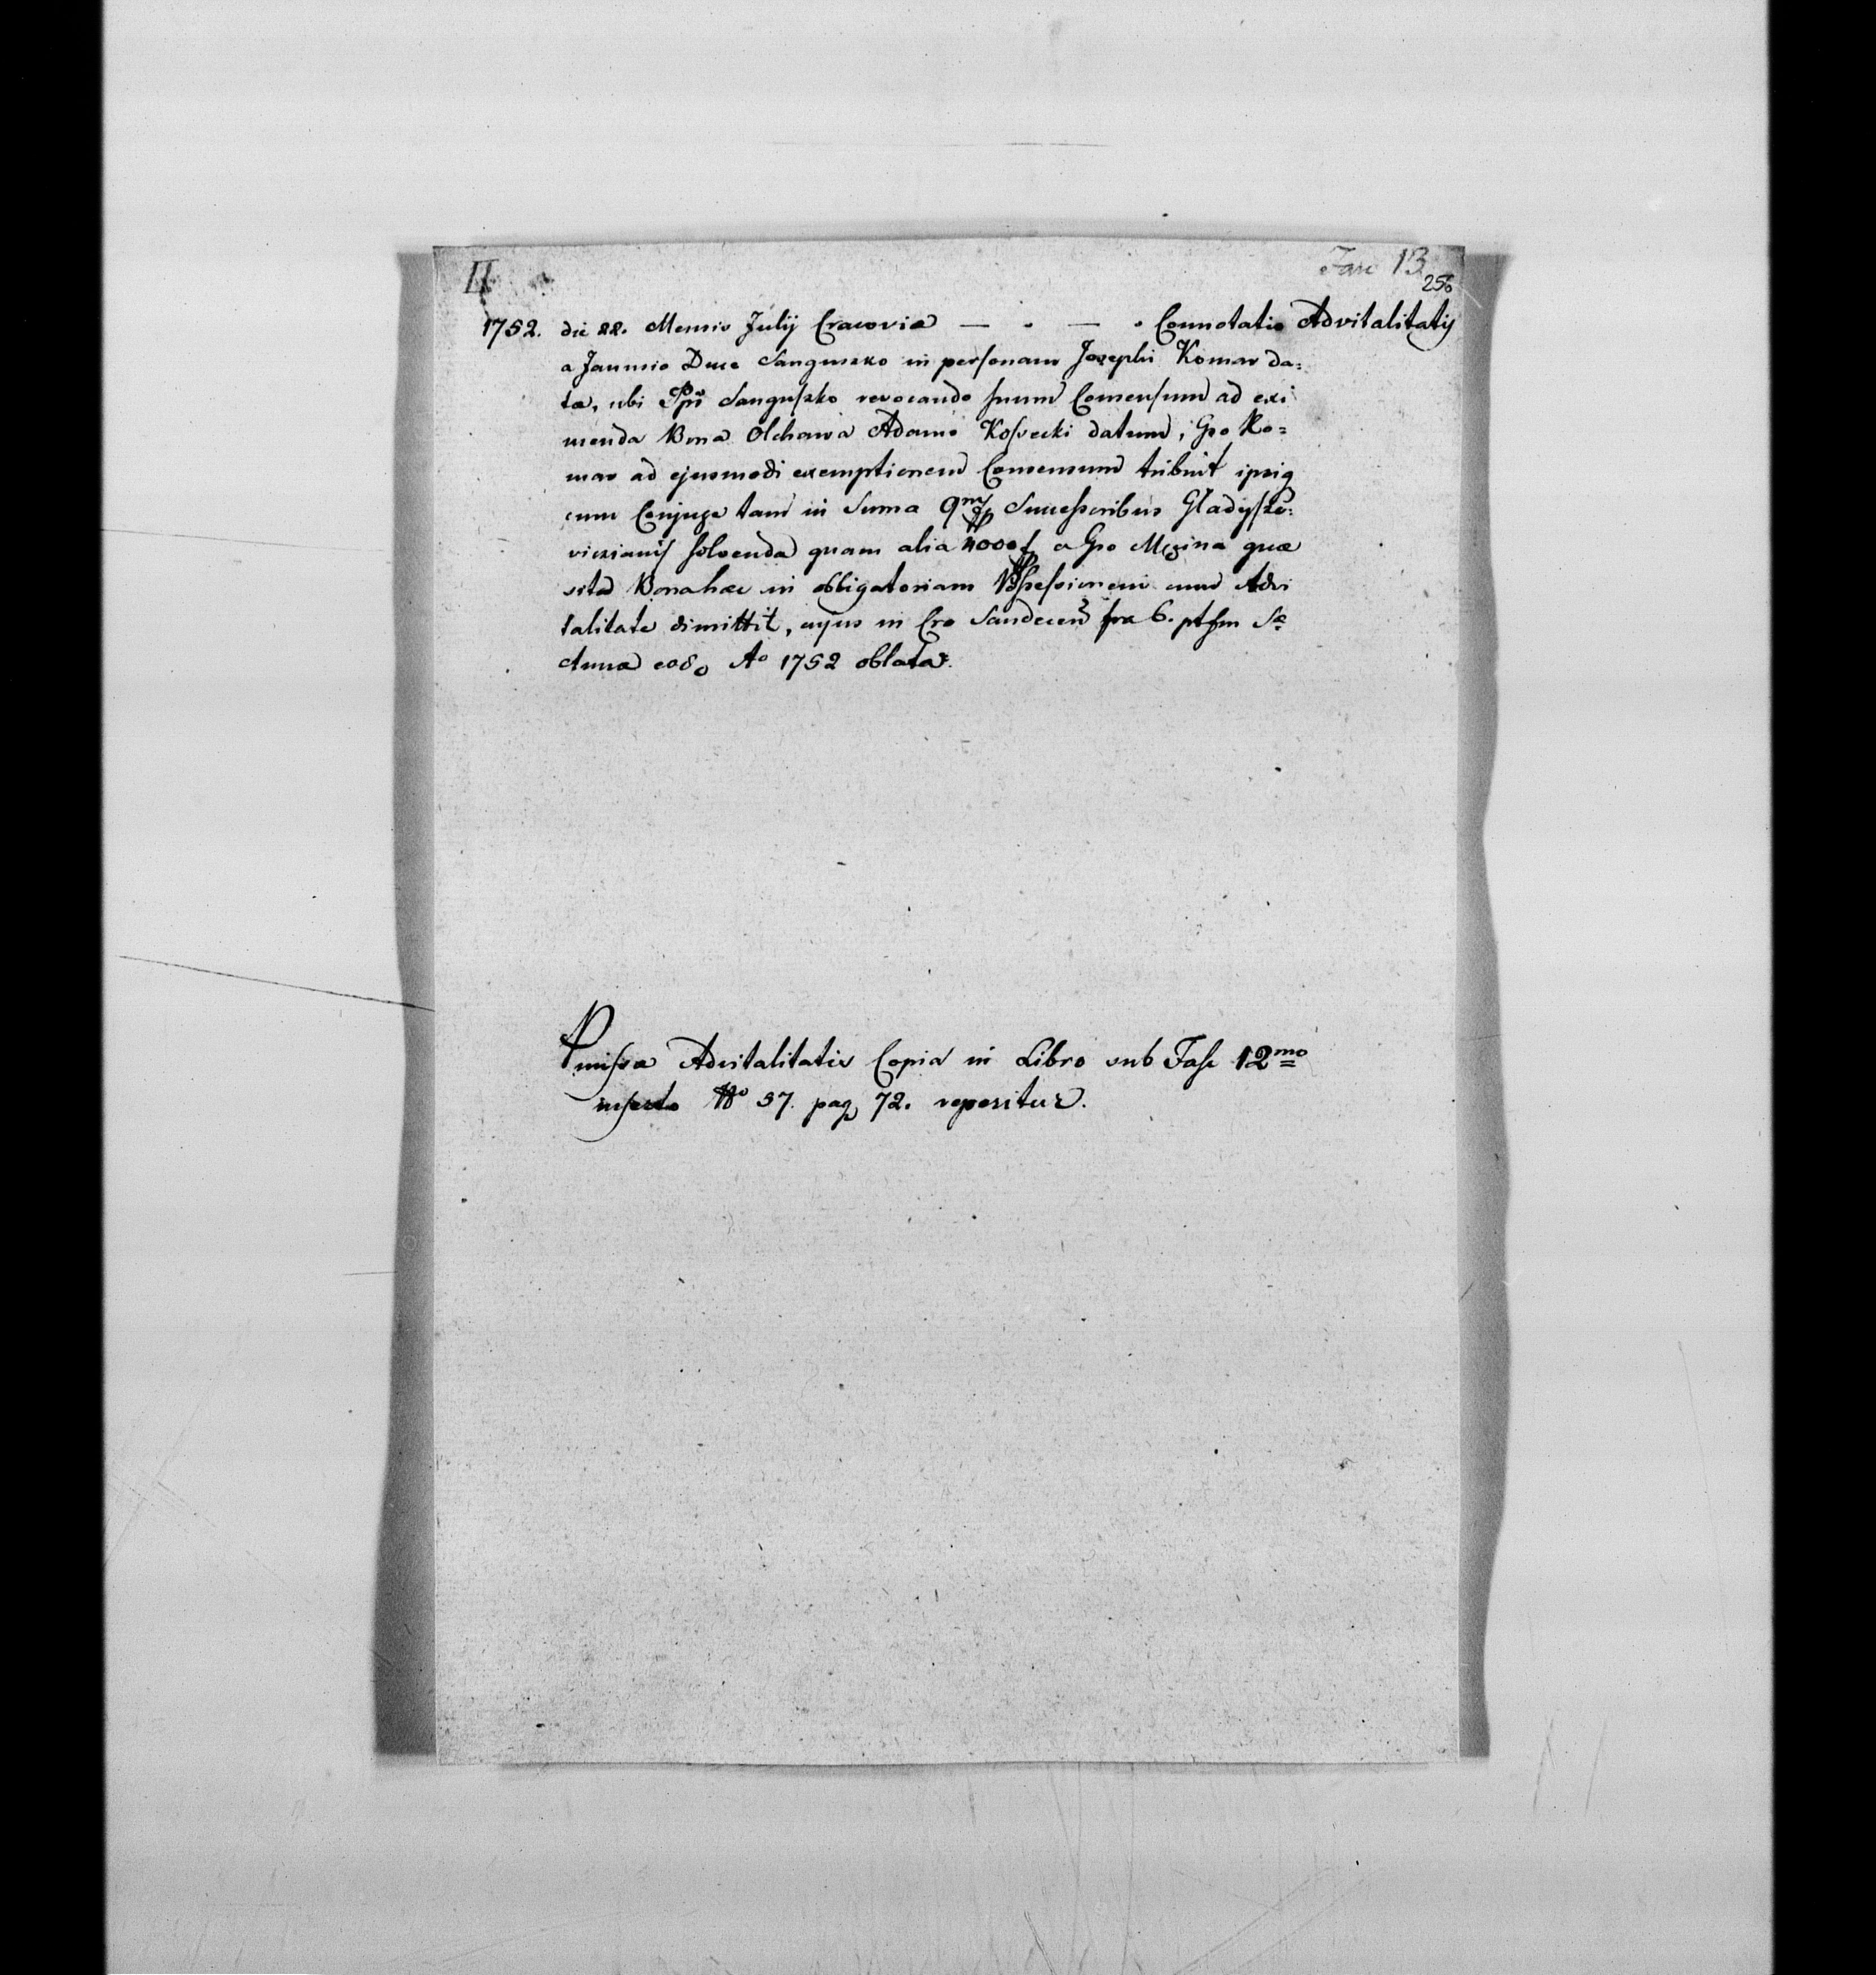 II
Fasc 13
256
1752. die 22. Mensis Julij Cracoviæ — . — . Connotatio Advitalitatis
a Janusio Duce Sanguszko in personam Josephi Komar da=
tæ, ubi Sanguszko revocando suum Consensum ad exi
menda Bona Olchawa Adamo Kossecki datum, Gso Ko=
mar ad ejusmodi exemptionem Consensum tribuit ipsiq
cum Conjuge tam in Suma 9m Successoribus Gladysze=
viczianis solvenda quam alia 4000 f a Gso quæ
sita Bona hæc in obligatoriam Possessionem cum Advi
talitate dimittit, cujus in Cro Sandecen fra 6. Sæ
ctuna eod Ao 1752 oblata.
Pmissæ Advitalitatis Copia in Libro sub Fasc 12mo
inserto No 37. pag 72. reperitur.